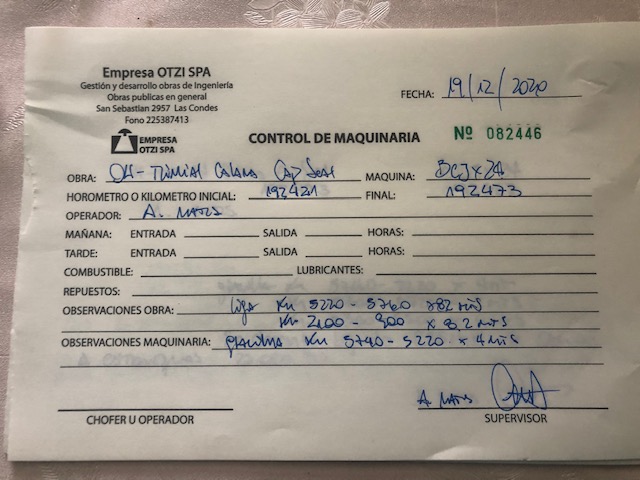 Empresa OTZI SPA
Gestión y desarrollo obras de Ingeniería
Obras publicas en general
San Sebastian 2957 Las Condes
Fono 225387413
FECHA: 19/12/2020
EMPRESA
OTZI SPA
CONTROL DE MAQUINARIA Nº 082446
OBRA: Calama MAQUINA:
HOROMETRO O KILOMETRO INICIAL: 192421 FINAL: 192473
OPERADOR: A. Matus
MAÑANA: ENTRADA SALIDA HORAS:
TARDE: ENTRADA SALIDA HORAS:
COMBUSTIBLE: LUBRICANTES:
REPUESTOS:
OBSERVACIONES OBRA: Liga Km 5220 - 5760 x82
Km 2400 - 900 x 8,2 mts
OBSERVACIONES MAQUINARIA: Km 5740 - 5220 x 4 mts
A. Matus
CHOFER U OPERADOR SUPERVISOR